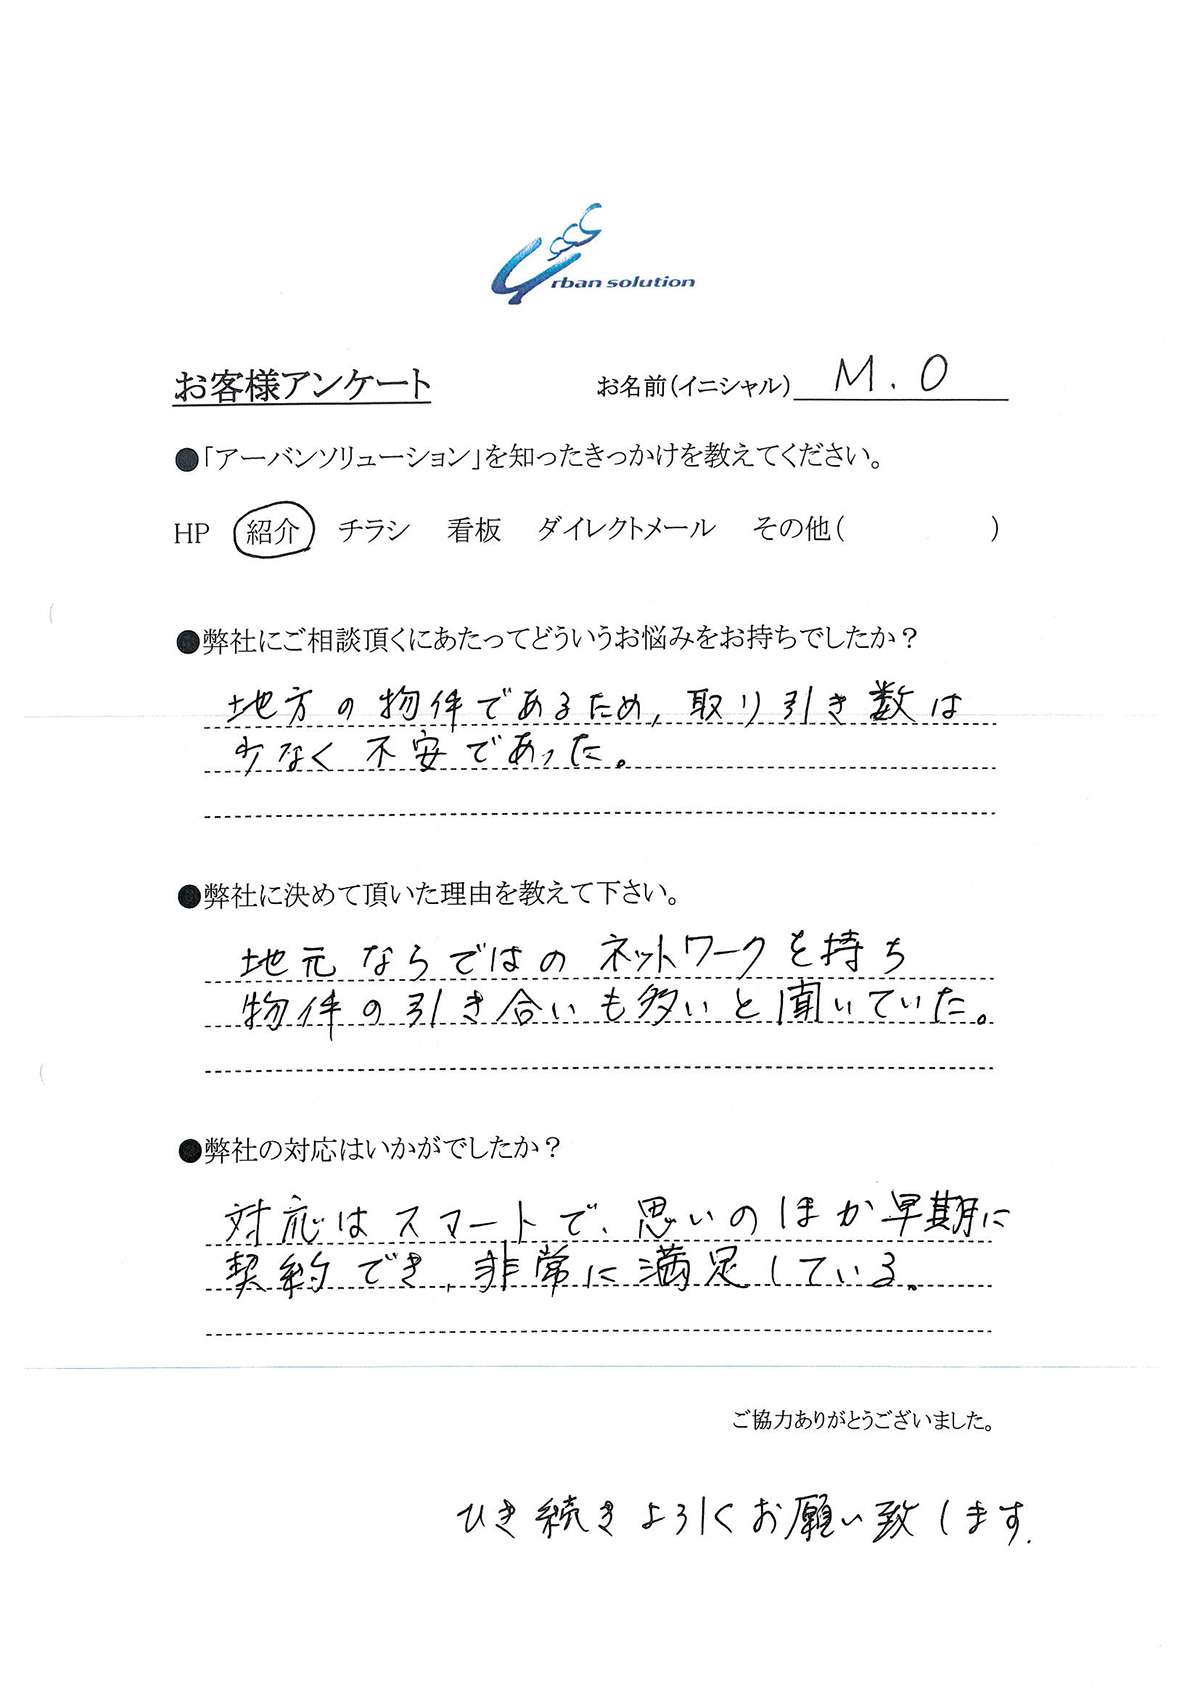 Urban solution
お客様アンケート お名前(イニシャル) M.O
●「アーバンソリューション」を知ったきっかけを教えてください。
HP 紹介 チラシ 看板 ダイレクトメール その他( )
●弊社にご相談頂くにあたってどういうお悩みをお持ちでしたか？
地方の物件であるため,取り引き数は
少なく不安であった。
●弊社に決めて頂いた理由を教えて下さい。
地元ならではのネットワークを持ち
物件の引き合いも多いと聞いていた。
●弊社の対応はいかがでしたか？
対応はスマートで、思いのほか早期に
契約でき,非常に満足している。
ご協力ありがとうございました。
ひき続きよろしくお願い致します.